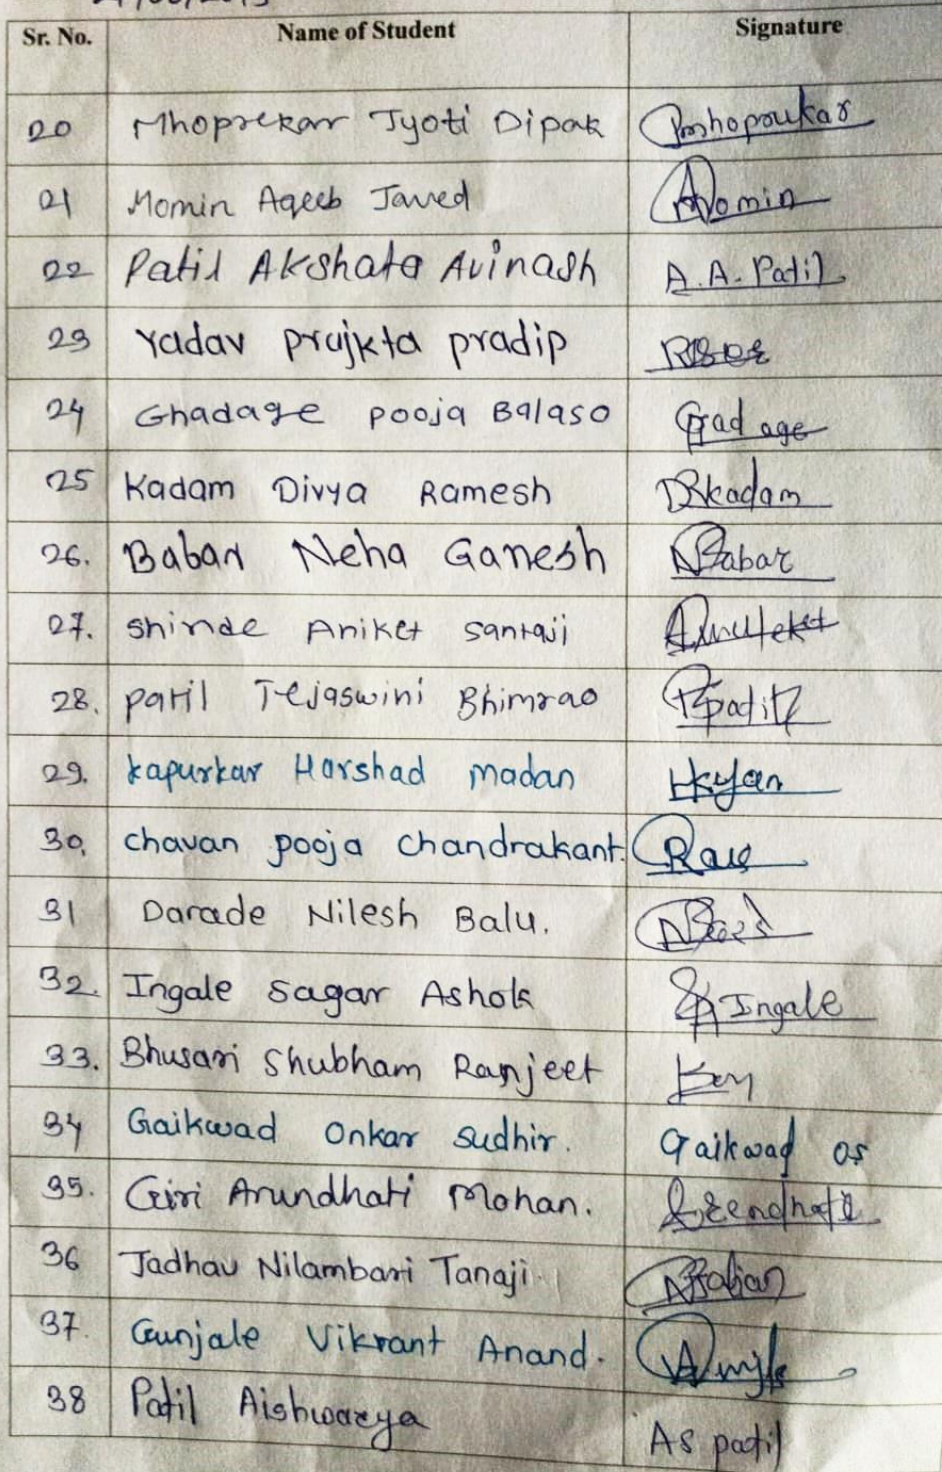 Sr. No. Name of Student Signature
20 Mhoprekar Jyoti Dipak Mhoprekar
21 Momin Aqeeb Javed Momin
22 Patil Akshata Avinash A.A. Patil
23 Yadav prajkta pradip
24 Ghadage pooja Balaso Gadage
25 Kadam Divya Ramesh DRkadam
26. Babar Neha Ganesh NBabar
27. Shinde Aniket Santaji
28. patil Tejaswini Bhimrao Tpatil
29. kapurkar Harshad madan
30. chavan pooja chandrakant.
31 Darade Nilesh Balu.
32. Ingale Sagar Ashok SA Ingale
33. Bhusari Shubham Ranjeet
34 Gaikwad Onkar Sudhir. Gaikwad OS
35. Giri Arundhati Mohan.
36 Jadhav Nilambari Tanaji.
37. Gunjale Vikrant Anand.
38 Patil Aishwarya As patil